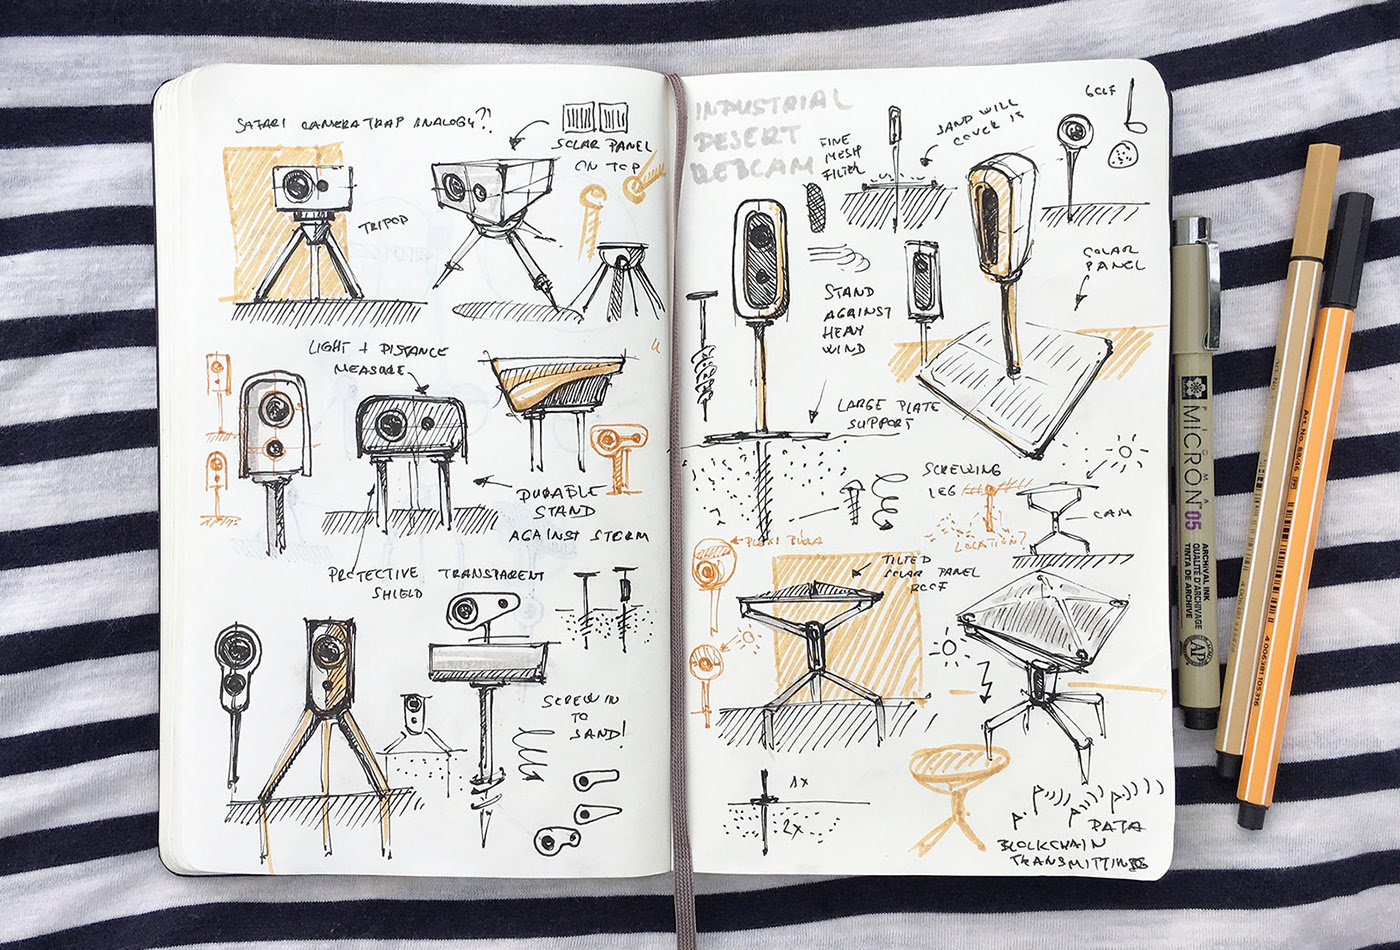 SAFARI CAMERATRAP ANALOGY?!
SOLAR PANEL
ON TOP
TRIPOD
LIGHT + DISTANCE
MEASURE
DURABLE
STAND
AGAINST STORM
PROTECTIVE TRANSPARENT
SHIELD
SCREW IN
TO
SAND!
INDUSTRIAL
DESERT
WEBCAM
FINE
MESH
FILTER
SAND WILL
COVER IS
GOLF
SOLAR
PANEL
STAND
AGAINST
HEAVY
WIND
LARGE PLATE
SUPPORT
SCREWING
LEG
LOCATION?
CAM
TILTED
SOLAR PANEL
ROOF
1x
2x
DATA
BLOCKCHAIN
TRANSMITTING
PIGMA
MICRON 05
ARCHIVAL INK
QUALITÉ D'ARCHIVAGE
TINTA DE ARCHIVE
AP
Art. No. 88/46
4 006381 105316